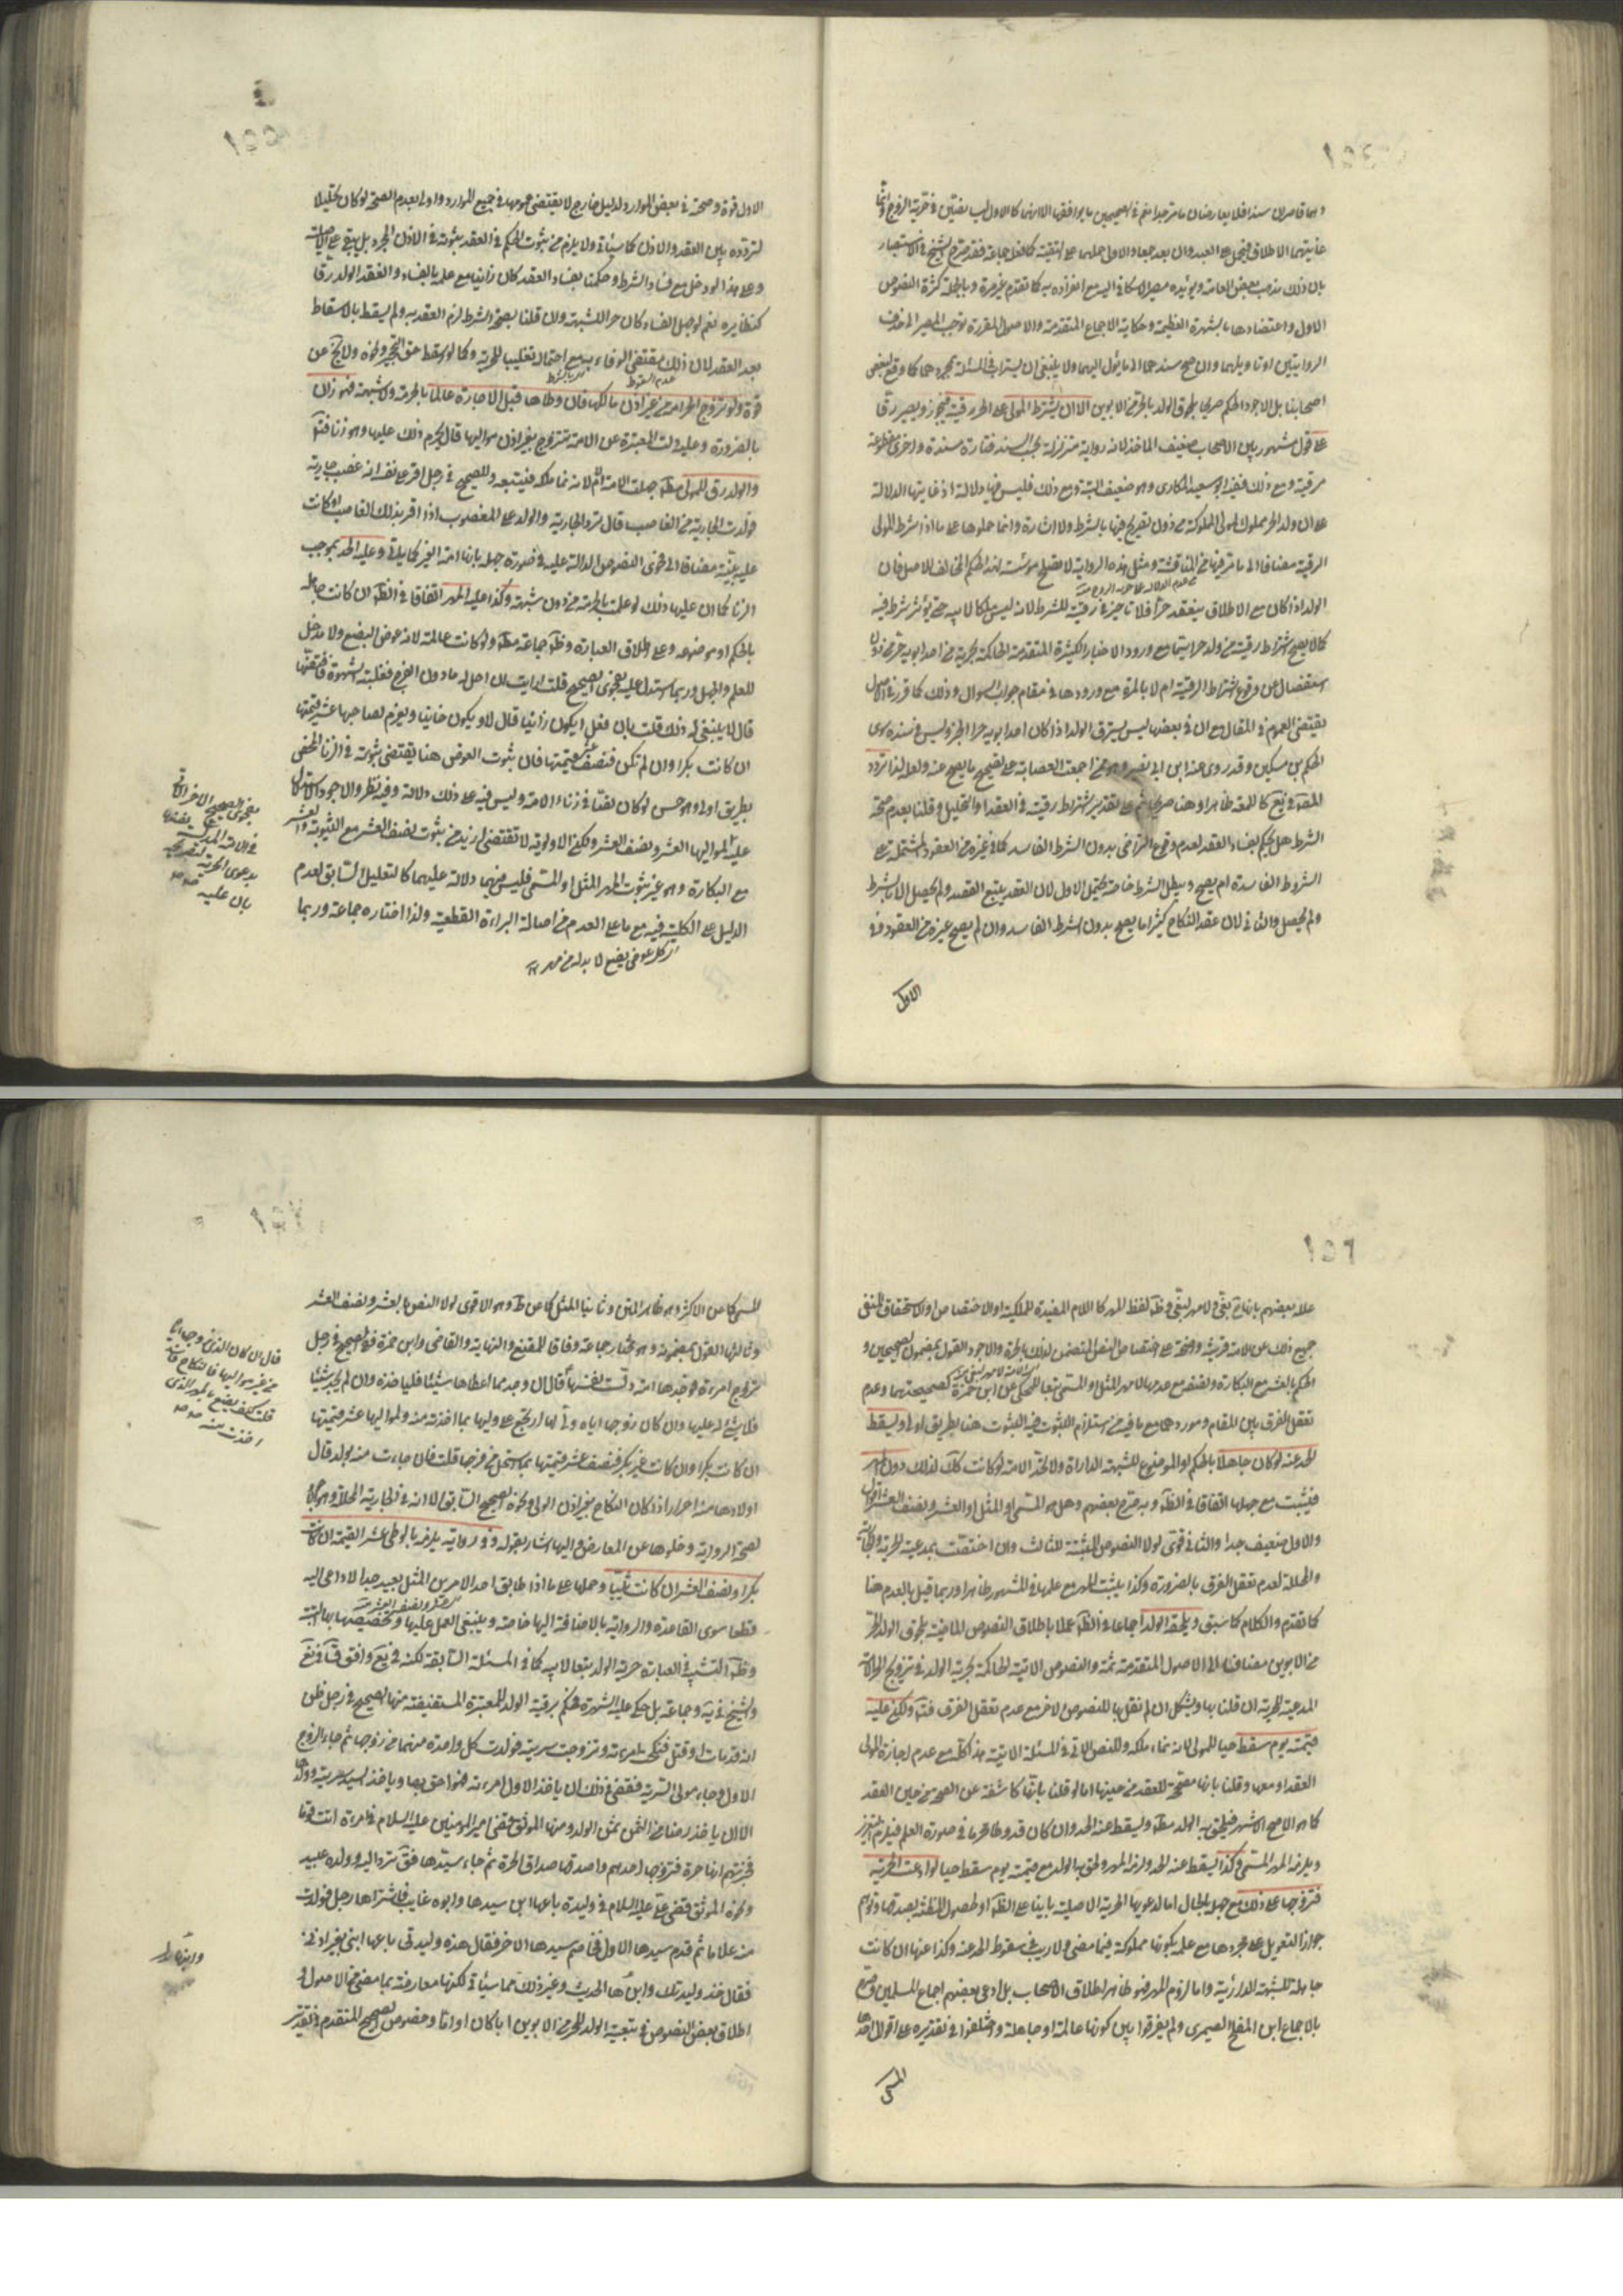 وهما قاصران سندا فلا يعارضان ما مر جدا نعم في الصحيحين ما يوافقها الا انهما كالاول ليسا بنصين في حرية الزوج وانما
غايتهما الاطلاق فيحمل على العبد وان بعد جمعا والاولى حملهما على التقية كما فعله جماعة فقد صرح الشيخ في الاستبصار
بان ذلك مذهب بعض العامة ويؤيده مصير الاسكافي اليه مع انفراده به كما تقدم غير مرة وبالجملة كثرة النصوص
الاول واعتضادها بالشهرة العظيمة وحكاية الاجماع المتقدمة والاصول المقررة توجب المصير الى حذف
الروايتين او تاويلهما وان صح سندهما الى ما يؤل اليهما ولا ينبغي ان يستراب في المسئلة بمجردهما كما وقع لبعض
اصحابنا بل الاجود الحكم صريحا بلحوق الولد بالحر من الابوين الا ان يشترط المولى على الحر رقيته فيجوز ويصير رقا
على قول مشهور بين الاصحاب ضعيف الماخذ لانه رواية متزلزلة بحسب السند فتارة مسندة واخرى مقطوعة
مرقية ومع ذلك ففيه ابو سعيد المكاري وهو ضعيف البتة ومع ذلك فليس فيها دلالة اذ غايتها الدلالة
على ان ولد الحر مملوك لمولى المملوكة من دون تصريح فيها بالشرط ولا اشارة وانما حملوها على ما اذا شرط المولى
الرقية مضافا الى ما مر فيها من المناقشة ومثل هذه الرواية لا تصلح مؤسسة لهذا الحكم المخالف للاصل فان
الولد اذا كان مع الاطلاق ينعقد حرا فلا تاثير في رقيته للشرط لانه ليس ملكا لابيه حتى يؤثر شرطه فيه
كما لا يصح اشتراط رقية من ولد حرا سيما مع ورود الاخبار الكثيرة المتقدمة الحاكمة بحرية من احد ابويه حر من دون
استفصال عن وقوع اشتراط الرقية ام لا بالمرة مع ورودها في مقام جواب السوال وذلك كما قرر في الاصول
يقتضي العموم في المقال مع ان في بعضها ليس يسترق الولد اذا كان احد ابويه حرا الخبر وليس في سنده سوى
الحكم بن مسكين وقد روى عنه ابن ابي نصر وهو ممن اجمعت العصابة على تصحيح ما يصح عنه ولعله لذا تردد
المص في يع كاللمعة ظاهرا وهنا صريحا ثم على تقدير اشتراط رقيته في العقد او التحليل وقلنا بعدم صحة
الشرط هل يحكم بفساد العقد لعدم وقوع التراضي بدون الشرط الفاسد كما في غيره من العقود المشتملة على
الشروط الفاسدة ام يصح ويبطل الشرط خاصة يحتمل الاول لان العقد يتبع القصد ولم يحصل الا بالشرط
ولم يحصل والثاني لان عقد النكاح كثيرا ما يصح بدون الشرط الفاسد وان لم يصح غيره من العقود وفي
الاول
الاول قوة وصحته في بعض الموارد لدليل خارج لا يقتضي عمومها في جميع الموارد واولى بعدم الصحة لو كان تحليلا
لتردده بين العقد والاذن كما سيأتي ولا يلزم من ثبوت الحكم في العقد ثبوته في الاذن المجرد بل يبقى على الاصل
وعلى هذا لو دخل مع فساد الشرط وحكمنا بفساد العقد كان زانيا مع علمه بالفساد وانعقد الولد رقا
كنظايره نعم لو جهل الفساد كان حرا للشبهة وان قلنا بصحة الشرط لزم العقد به ولم يسقط بالاسقاط
بعد العقد لان ذلك مقتضى الوفاء به مع احتمال تغليبا للحرية وكما لو اسقط حق التحجير ونحوه ولا يخ عن
قوة ولو تزوج الحر امة من غير اذن مالكها فان وطأها قبل الاجازة عالما بالحرمة ولا شبهة فهو زان
بالضرورة وعليه دلت المعتبرة عن الامة تتزوج بغير اذن مواليها قال يحرم ذلك عليها وهو زنا فتو
والولد رق للمولى مط جهلت الامة ام لا لانه نما ملكه فيتبعه وللصحيح في رجل اقر على نفسه انه غصب جارية
فولدت الجارية من الغاصب قال ترد الجارية والولد على المغصوب اذا اقر بذلك الغاصب او كانت
عليه بينة مضافا الى فحوى النصوص الدالة عليه في صورة جهله بانها امة الغير كما ياتي وعليه الحد بموجب
الزنا كما ان عليها ذلك لو علمت بالحرمة من دون شبهة وكذا عليه المهر اتفاقا في الظ ان كانت جاهلة
بالحكم او موضوعه وعلى اطلاق العبارة وظ جماعة مط ولو كانت عالمة لانه عوض البضع ولا مدخل
للعلم والجهل وربما استدل عليه بفحوى الصحيح قلت ارايت ان احل له ما دون الفرج فغلبته الشهوة فاقتضها
قال لا ينبغي له ذلك قلت فان فعل ايكون زانيا قال لا ويكون خائنا ويغرم لصاحبها عشر قيمتها
ان كانت بكرا وان لم تكن فنصف عشر قيمتها فان ثبوت العوض هنا يقتضي ثبوته في الزنا المحض
بطريق اولى وهو حسن لو كان نصا في زناء الامة وليس فيه على ذلك دلالة وفيه نظر والاجود الاستدلال
عليه لمواليها العشر ونصف العشر ولكن الاولوية لا تقتضي ازيد من ثبوت نصف العشر مع الثيبوبة والعشر
مع البكارة وهو غير ثبوت المهر المثل او المسمى فليس فيهما دلالة عليهما كالتعليل السابق لعدم
الدليل على الكلية فيه مع ما على العدم من اصالة البراءة القطعية ولذا اختاره جماعة وربما
ان كل عوض بضع لا بد له من مهر
بفحوى الصحيح
بدعوى الحرية
بان عليه
١٥٥
١٥٦
علله بعضهم بانها بغي ولا مهر لبغي وظ لفظ المهر كاللام المفيدة للملكية او الاختصاص او الاستحقاق المنفي
جميع ذلك عن الامة قرينة واضحة على اختصاص النص المتضمن لذلك بالحرة والاجود القول بمضمون الصحيحين و
الحكم بالعشر مع البكارة ونصفه مع عدمها لا مهر المثل او المسمى تبعا للمحكي عن ابن حمزة لصحيحيتهما وعدم
تعقل الفرق بين المقام وموردهما مع ما فيه من استلزام الثبوت فيه الثبوت هنا بطريق اولى ويسقط
الحد عنه لو كان جاهلا بالحكم او الموضوع للشبهة الدارأة ولا تحد الامة لو كانت كك لذلك دون المهر
فيثبت مع جهلها اتفاقا في الظ وبه صرح بعضهم وهل هو المسمى او المثل او العشر ونصف العشر اقوال
والاول ضعيف جدا والثاني قوي لولا النصوص المثبتة للثالث وان اختصت بمدعية الحرية والجانية
والمحللة لعدم تعقل الفرق بالضرورة وكذا يثبت المهر مع علمها في المشهور ظاهرا وربما قيل بالعدم هنا
كما تقدم والكلام كما سبق ويلحقه الولد اجماعا في الظ عملا باطلاق النصوص الماضية بلحوق الولد الحر
من الابوين مضافا الى الاصول المتقدمة ثمة والنصوص الاتية الحاكمة بحرية الولد في تزويج الامة
المدعية للحرية ان قلنا بها ويشكل ان لم نقل بها للنصوص الاخر مع عدم تعقل الفرق فت ولكن عليه
قيمته يوم سقط حيا للمولى لانه نماء ملكه وللنص الاتي في المسئلة الاتية هذا كله مع عدم اجازة المولى
العقد او معها وقلنا بانها مصححة للعقد من حينها اما لو قلنا بانها كاشفة عن الصحة من حين العقد
كما هو الاصح الاشهر فيلحق به الولد مط ويسقط عنه الحد وان كان قد وطا محرما في صورة العلم فيلزم التعزير
ويلزمه المهر المسمى وكذا يسقط عنه الحد ولزمه المهر ولحق به الولد مع قيمته يوم سقط حيا لو ادعت الحرية
فتزوجها على ذلك مع جهله بالحال اما لدعويها الحرية الاصلية بانيا على الظ او لحصول المظنة بصدقها وتوهم
جواز التعويل على مجردها مع علمه بكونها مملوكة فيما مضى ولا ريب في سقوط الحد عنه وكذا عنها ان كانت
جاهلة للشبهة الدارئية واما لزوم المهر فهو ظاهر اطلاق الاصحاب بل ادعى بعضهم اجماع المسلمين وصرح
بالاجماع ابن المفلح الصيمري ولم يفرقوا بين كونها عالمة او جاهلة واختلفوا في تقديره على اقوال احدها
المسمى
١٥٧
المسمى كما عن الاكثر وهو ظاهر المتن وثانيها المثل كما عن ط وهو الاقوى لولا النص بالعشر ونصف العشر
وثالثها القول بمضمونه وهو مختار جماعة وفاقا للمقنع والنهاية والقاضي وابن حمزة ففي الصحيح في رجل
تزوج امرءة فوجدها امة دلست نفسها قال ان وجد مما اعطاها شيئا فلياخذه وان لم يجد شيئا
فلا شئ له عليها وان كان زوجها اياه ولي لها ارتجع على وليها بما اخذته منه ولمواليها عشر قيمتها
ان كانت بكرا وان كانت غير بكر فنصف عشر قيمتها بما استحل من فرجها قلت فان جاءت منه بولد قال
اولادها منه احرار اذا كان النكاح بغير اذن المولى ونحوه الصحيح السابق الا انه في الجارية المحللة وهو حجة
لصحة الرواية وخلوها عن المعارض واليها اشار بقوله وفي رواية يلزمه بالوطي عشر القيمة ان كانت
بكرا ونصف العشر ان كانت ثيبا وحملها على ما اذا طابق احد الامرين المثل بعيد جدا لا داعي اليه
قطعا سوى القاعدة والرواية بالاضافة اليها خاصة وينبغي العمل عليها وتخصيصها بها البتة
وظ التشبيه في العبارة حرية الولد تبعا لابيه كما في المسئلة السابقة لكنه في يع وافق
والشيخ في ية وجماعة بل حكي عليه الشهرة فحكم برقية الولد للمعتبرة المستفيضة منها الصحيح في رجل ظن
اهله انه قد مات او قتل فنكحت امرءته وتزوجت سريته فولدت كل واحدة منهما من زوجها ثم جاء الزوج
الاول وجاء مولى السرية فقضى في ذلك ان ياخذ الاول امرءته فهو احق بها وياخذ السيد سريته وولدها
الا ان ياخذ رضا من الثمن ثمن الولد ومنها الموثق قضى امير المؤمنين عليه السلام في امرءة اتت قوما
فخبرتهم انها حرة فتزوجها احدهم واصدقها صداق الحرة ثم جاء سيدها فق ترد اليه وولده عبيد
ونحوه الموثق قضى علي عليه السلام في وليدة باعها ابن سيدها وابوه غايب فاشتراها رجل فولدت
منه غلاما ثم قدم سيدها الاول فخاصم سيدها الاخر فقال هذه وليدتي باعها ابني بغير اذني
فقال خذ وليدتك وابنها الحديث وغير ذلك مما سيأتي لكنها معارضة بما مضى من الاصول و
اطلاق بعض النصوص في تبعية الولد للحر من الابوين ابا كان او اما وخصوص الصحيح المتقدم في تقدير
قال ان كان الذي زوجها اياه
من غير مواليها فالنكاح فاسد
قلت كيف يصنع بالمهر الذي
اخذت منه